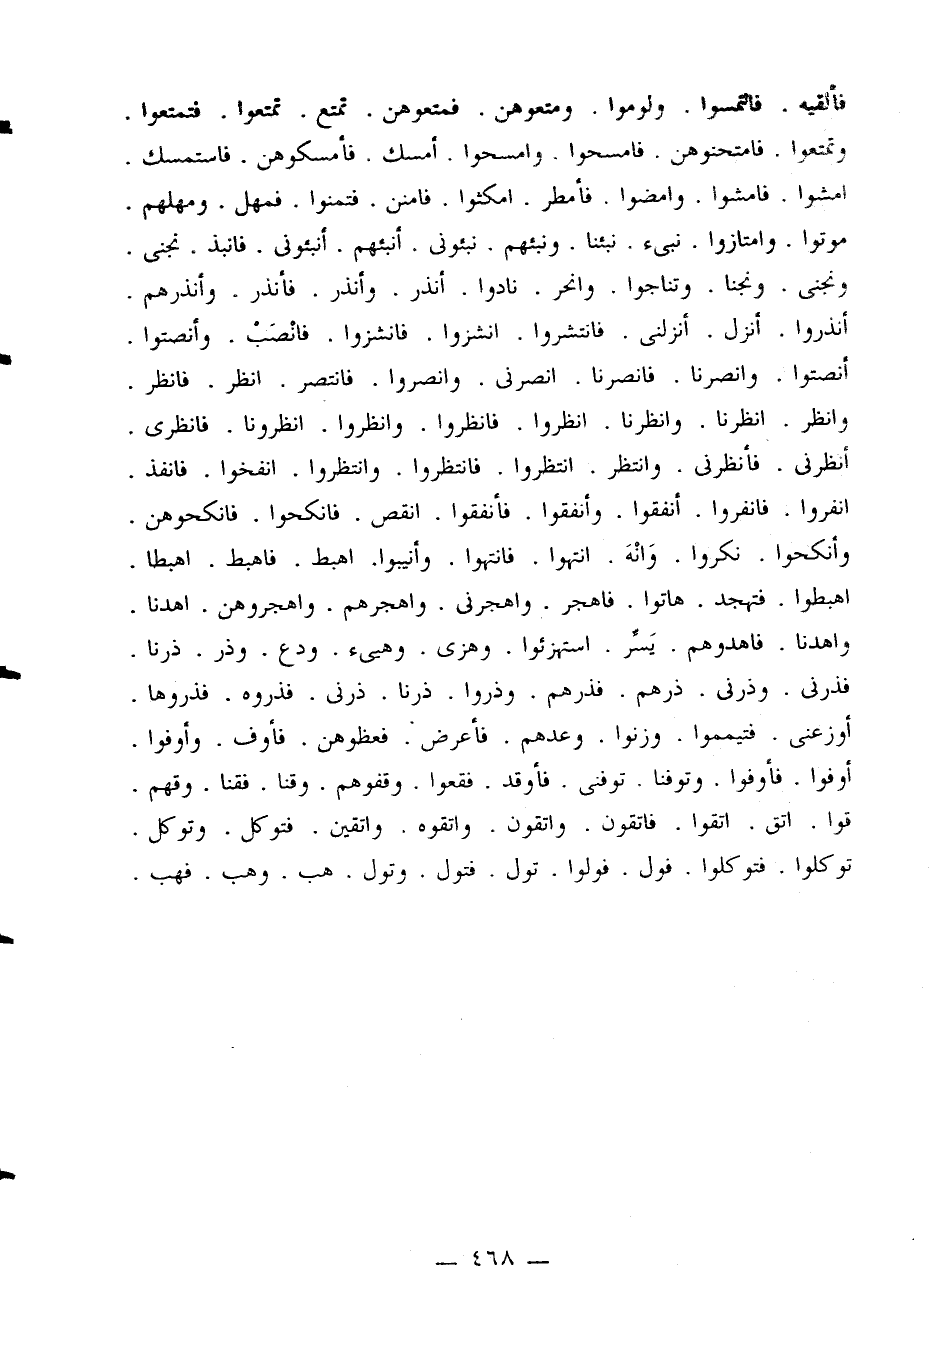 فألقيه . فالتمسوا . ولوموا . ومتعوهن . فمتعوهن . تمتع . تمتعوا . فتمتعوا .
وتمتعوا . فامتحنوهن . فامسحوا . وامسحوا . أمسك . فأمسكوهن . فاستمسك .
امشوا . فامشوا . وامضوا . فأمطر . امكثوا . فامنن . فتمنوا . فمهل . ومهلهم .
موتوا . وامتازوا . نبىء . نبئنا . ونبئهم . نبئونى . أنبئهم . أنبئونى . فانبذ . نجنى .
ونجنى . ونجنا . وتناجوا . وانحر . نادوا . أنذر . وأنذر . فأنذر . وأنذرهم .
أنذروا . أنزل . أنزلنى . فانتشروا . انشزوا . فانشزوا . فانْصَبْ . وأنصتوا .
أنصتوا . وانصرنا . فانصرنا . انصرنى . وانصروا . فانتصر . انظر . فانظر .
وانظر . انظرنا . وانظرنا . انظروا . فانظروا . وانظروا . انظرونا . فانظرى .
أنظرنى . فأنظرنى . وانتظر . انتظروا . فانتظروا . وانتظروا . انفخوا . فانفذ .
انفروا . فانفروا . أنفقوا . وأنفقوا . فأنفقوا . انقص . فانكحوا . فانكحوهن .
وأنكحوا . نكروا . وَانْهَ . انتهوا . فانتهوا . وأنيبوا. اهبط . فاهبط . اهبطا .
اهبطوا . فتهجد . هاتوا . فاهجر . واهجرنى . واهجرهم . واهجروهن . اهدنا .
واهدنا . فاهدوهم . يَسِّرْ . استهزئوا . وهزى . وهيىء . ودع . وذر . ذرنا .
فذرنى . وذرنى . ذرهم . فذرهم . وذروا . ذرنا . ذرنى . فذروه . فذروها .
أوزعنى . فتيمموا . وزنوا . وعدهم . فأعرض . فعظوهن . فأوف . وأوفوا .
أوفوا . فأوفوا . وتوفنا . توفنى . فأوقد . فقعوا . وقفوهم . وقنا . فقنا . وقهم .
قوا . اتق . اتقوا . فاتقون . واتقون . واتقوه . واتقين . فتوكل . وتوكل .
توكلوا . فتوكلوا . فول . فولوا . تول . فتول . وتول . هب . وهب . فهب .
— ٤٦٨ —